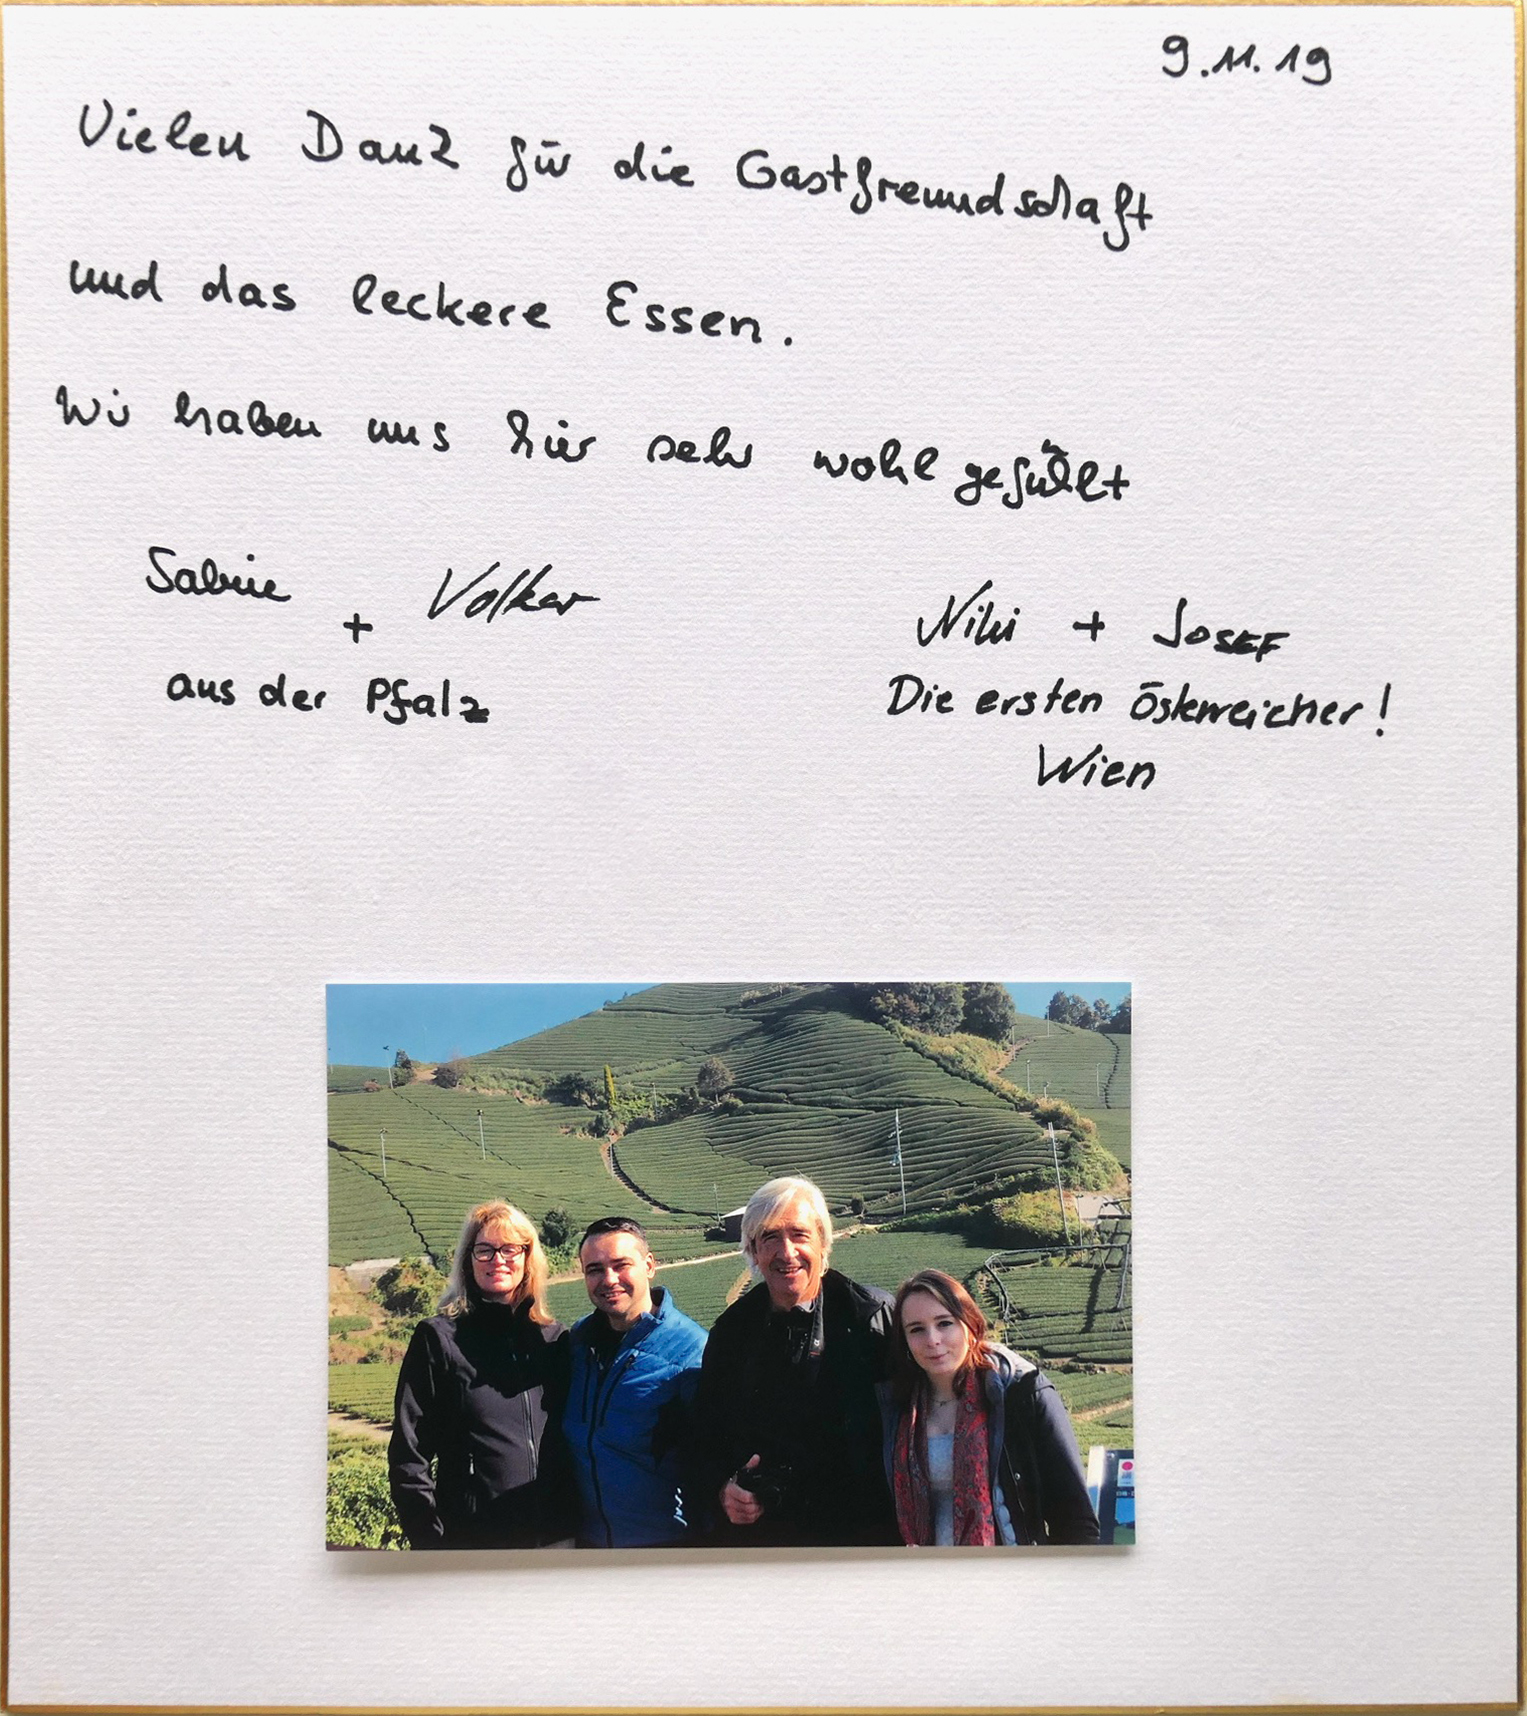 9.11.19
Vielen Dank für die Gastfreundschaft
und das leckere Essen.
Wir haben uns hier sehr wohl gefühlt
Sabine + Volker
aus der Pfalz
Niki + JOSEF
Die ersten Österreicher!
Wien